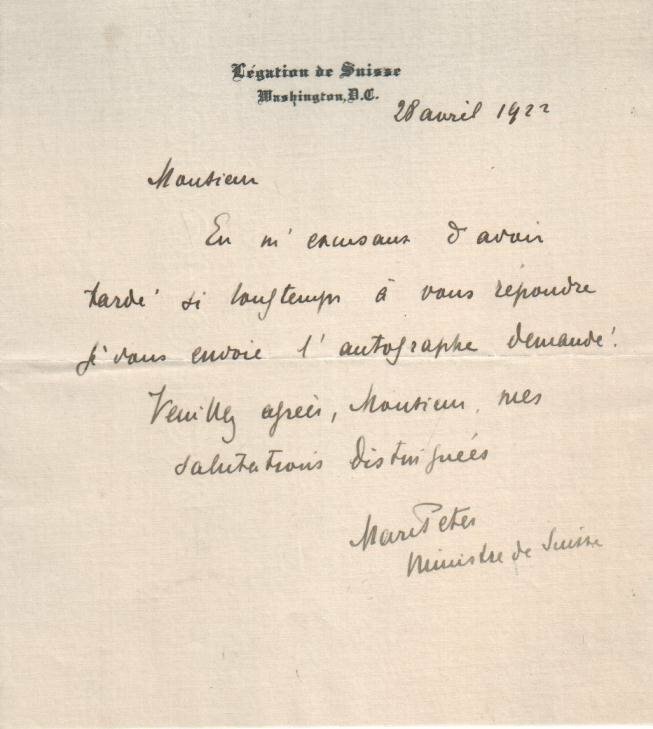 Légation de Suisse
Washington, D.C.
28 avril 1922
Monsieur
En m'excusant d'avoir
tardé si longtemps à vous répondre
je vous envoie l'autographe demandé.
Veuillez agréer, Monsieur, mes
salutations distinguées
Marc Peter
Ministre de Suisse